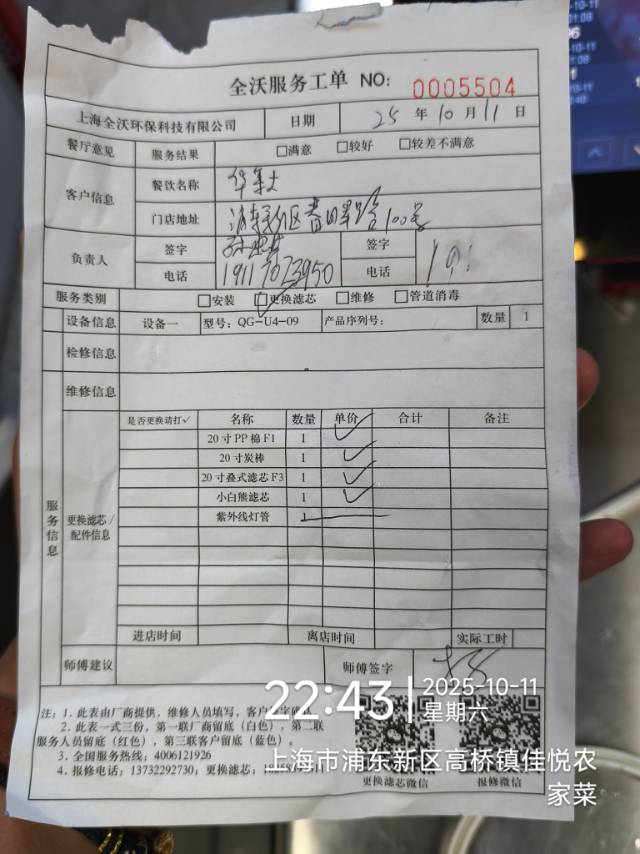 全沃服务工单 NO: 0005504
上海全沃环保科技有限公司 日期 25 年 10 月 11 日
餐厅意见 服务结果 □满意 □较好 □较差不满意
客户信息 餐饮名称 华莱士
门店地址 浦东新区 100号
负责人 签字 签字
电话 19117073950 电话
服务类别 □安装 □更换滤芯 □维修 □管道消毒
设备信息 设备一 型号: QG-U4-09 产品序列号: 数量 1
检修信息
维修信息
服务信息
更换滤芯/配件信息
是否更换请打√ 名称 数量 单价 合计 备注
20寸PP棉F1 1 ✓
20寸炭棒 1 ✓
20寸叠式滤芯F3 1 ✓
小白熊滤芯 1 ✓
紫外线灯管 1
进店时间 离店时间 实际工时
师傅建议 师傅签字
注: 1. 此表由厂商提供, 维修人员填写, 客户
2. 此表一式三份, 第一联厂商留底 (白色), 第二联
服务人员留底 (红色), 第三联客户留底 (蓝色)。
3. 全国服务热线: 4006121926
4. 报修电话: 13732292730, 更换滤芯,
更换滤芯微信 报修微信
22:43 2025-10-11
星期六
上海市浦东新区高桥镇佳悦农
家菜